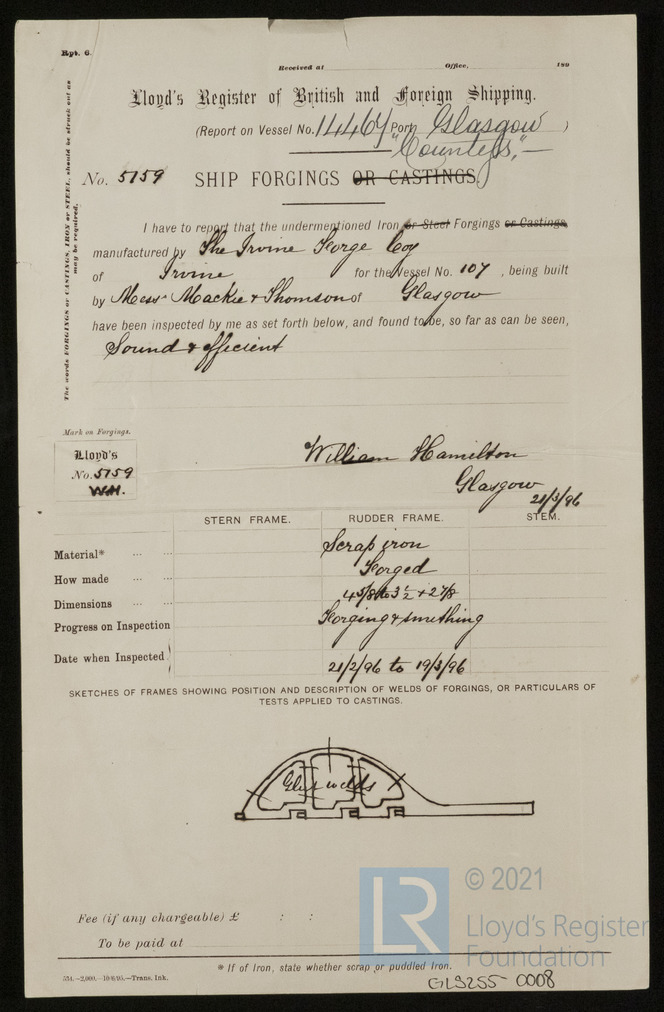 Rpt. 6.
Received at Office, 189
Lloyd's Register of British and Foreign Shipping.
(Report on Vessel No. 14467 Port Glasgow)
"Countess,"
No. 5159 SHIP FORGINGS OR CASTINGS.
The words FORGINGS or CASTINGS, IRON or STEEL, should be struck out as may be required.
I have to report that the undermentioned Iron or Steel Forgings or Castings,
manufactured by The Irvine Forge Coy
of Irvine for the Vessel No. 107, being built
by Messrs Mackie & Thomson of Glasgow
have been inspected by me as set forth below, and found to be, so far as can be seen,
Sound & efficient
Mark on Forgings.
Lloyd's
No. 5159
W.H.
William Hamilton
Glasgow
21/3/96
STERN FRAME. RUDDER FRAME. STEM.
Material* Scrap iron
How made Forged
Dimensions 4 5/8 to 3 1/2 & 2 7/8
Progress on Inspection Forging & smithing
Date when Inspected 21/2/96 to 19/3/96
SKETCHES OF FRAMES SHOWING POSITION AND DESCRIPTION OF WELDS OF FORGINGS, OR PARTICULARS OF
TESTS APPLIED TO CASTINGS.
welds
Fee (if any chargeable) £ : :
To be paid at
* If of Iron, state whether scrap or puddled Iron.
Trans. Ink.
GLS255-0008
LR © 2021
Lloyd's Register
Foundation